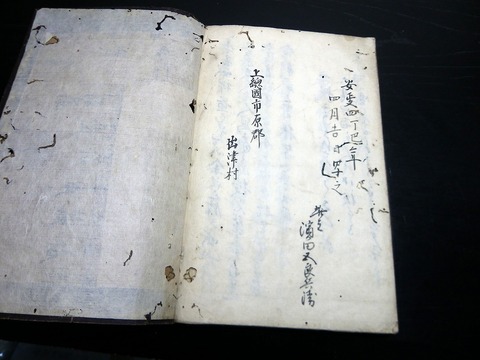 安政四丁巳年
四月吉日求之
濱田又良兵衛
上総國市原郡
出津村